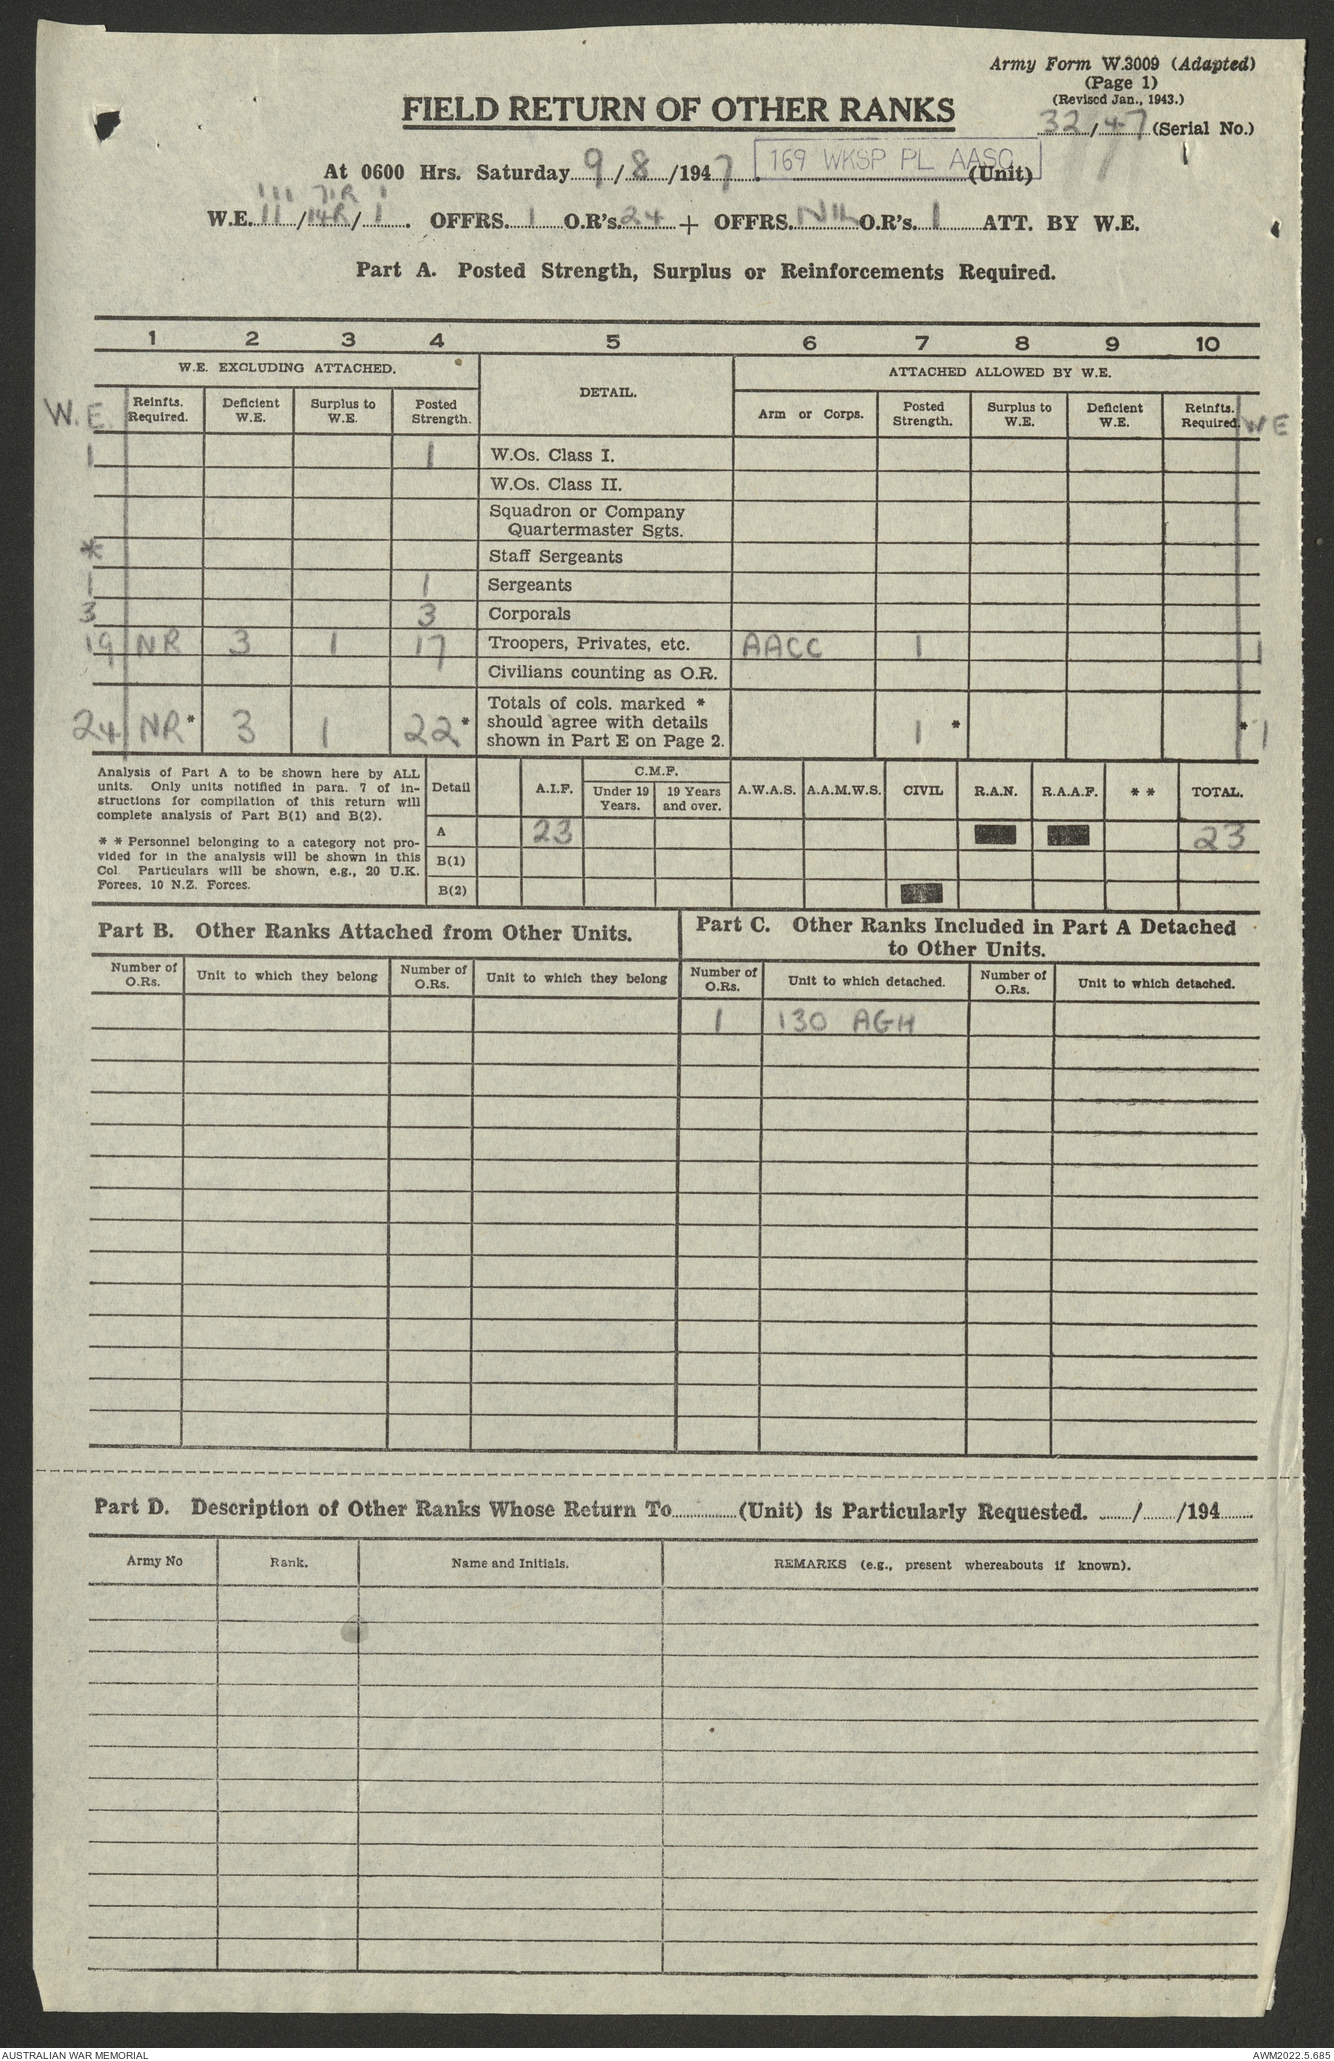 Army Form W.3009 (Adapted)
(Page 1)
(Revised Jan., 1943.)
FIELD RETURN OF OTHER RANKS
32/47 (Serial No.)
At 0600 Hrs. Saturday 9/8/1947. 169 WKSP PL AASC (Unit)
W.E. 11/14R/1. OFFRS. 1 O.R's. 24 + OFFRS. NIL O.R's. 1 ATT. BY W.E.
Part A. Posted Strength, Surplus or Reinforcements Required.
1 2 3 4 5 6 7 8 9 10
W.E. EXCLUDING ATTACHED. DETAIL. ATTACHED ALLOWED BY W.E.
W.E. Reinfts. Required. Deficient W.E. Surplus to W.E. Posted Strength. Arm or Corps. Posted Strength. Surplus to W.E. Deficient W.E. Reinfts. Required. WE
1 1 W.Os. Class I.
W.Os. Class II.
Squadron or Company
Quartermaster Sgts.
* Staff Sergeants
1 1 Sergeants
3 3 Corporals
19 NR 3 1 17 Troopers, Privates, etc. AACC 1 1
Civilians counting as O.R.
Totals of cols. marked *
should agree with details
shown in Part E on Page 2.
24 NR* 3 1 22* 1* * 1
Analysis of Part A to be shown here by ALL
units. Only units notified in para. 7 of in-
structions for compilation of this return will
complete analysis of Part B(1) and B(2).
* * Personnel belonging to a category not pro-
vided for in the analysis will be shown in this
Col. Particulars will be shown, e.g., 20 U.K.
Forces, 10 N.Z. Forces.
Detail A.I.F. C.M.F. Under 19 Years. 19 Years and over. A.W.A.S. A.A.M.W.S. CIVIL R.A.N. R.A.A.F. * * TOTAL.
A 23 23
B(1)
B(2)
Part B. Other Ranks Attached from Other Units.
Part C. Other Ranks Included in Part A Detached
to Other Units.
Number of O.Rs. Unit to which they belong Number of O.Rs. Unit to which they belong Number of O.Rs. Unit to which detached. Number of O.Rs. Unit to which detached.
1 130 AGH
Part D. Description of Other Ranks Whose Return To (Unit) is Particularly Requested. / /194
Army No Rank. Name and Initials. REMARKS (e.g., present whereabouts if known).
AUSTRALIAN WAR MEMORIAL
AWM2022.5.685